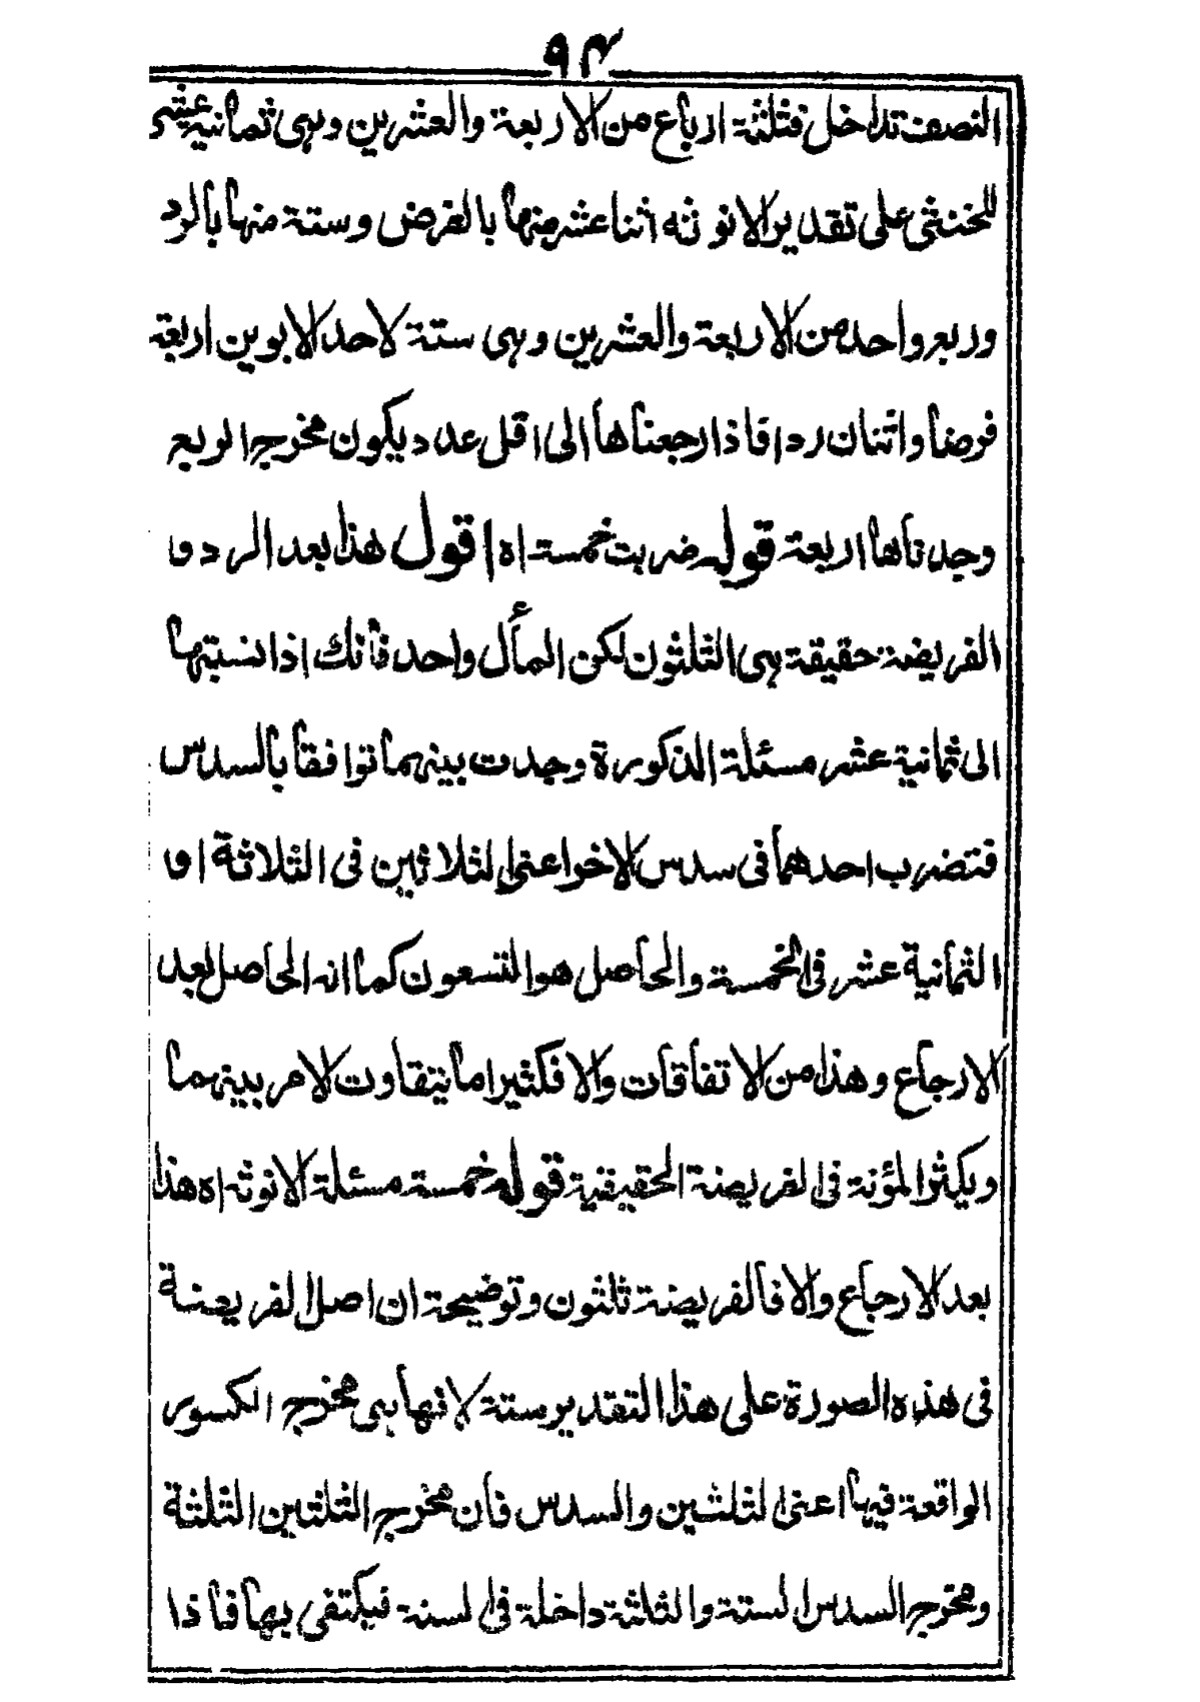 ٩٣
النصف تداخل فثلثة ارباع من الاربعة والعشرين وهى ثمانية عشر
للخنثى على تقدير الانوثه اثنا عشر منها بالفرض وستة منها بالرد
وربع واحد من الاربعة والعشرين وهى ستة لاحد الابوين اربعة
فرضا واثنان ردا فاذا رجعناها الى اقل عدد يكون مخرج الربع
وجدناها اربعة قوله ضربت خمسة اه اقول هذا بعد الرد و
الفريضة حقيقة هى الثلثون لكن المأل واحد فانك اذا نسبتها
الى ثمانية عشر مسئلة المذكورة وجدت بينهما توافقا بالسدس
فتضرب احدهما فى سدس الاخر اعنى الثلاثين فى الثلاثة او
الثمانية عشر فى الخمسة والحاصل هو التسعون كما انه الحاصل بعد
الارجاع وهذا من الاتفاقات والا فكثيرا ما يتفاوت الامر بينهما
ويكثر المؤنة فى الفريضة الحقيقية قوله خمسة مسئلة الانوثه اه هذا
بعد الارجاع والا فالفريضة ثلثون وتوضيحة ان اصل الفريضة
فى هذه الصورة على هذا التقدير ستة لانها هى مخرج الكسور
الواقعة فيها اعنى الثلثين والسدس فان مخرج الثلثين الثلثة
ومخرج السدس الستة والثلثة داخلة فى الستة فيكتفى بها فاذا